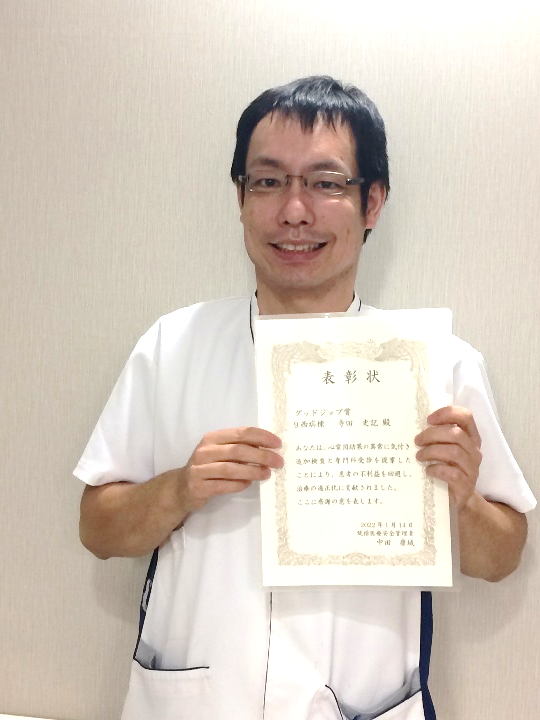 表彰状
グッドジョブ賞
9西病棟 寺田 史記 殿
あなたは、心電図結果の異常に気付き
追加検査と専門科受診を提案した
ことにより、患者の不利益を回避し、
治療の適正化に貢献されました。
ここに感謝の意を表します。
2022年1月14日
統括医療安全管理者
中田